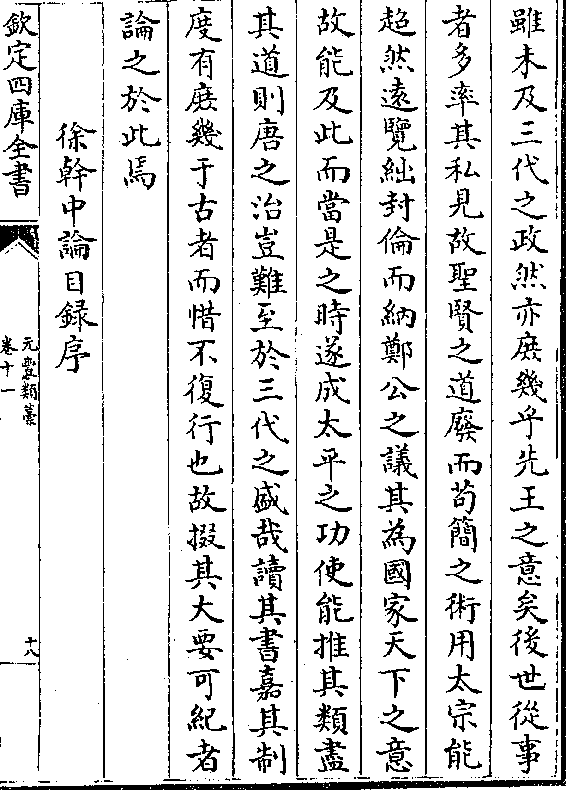 雖未及三代之政然亦庶幾乎先王之意矣後世從事
者多率其私見故聖賢之道廢而苟簡之術用太宗能
超然遠覽絀封倫而納鄭公之議其為國家天下之意
故能及此而當是之時遂成太平之功使能推其類盡
其道則唐之治豈難至於三代之盛哉讀其書嘉其制
度有庶幾于古者而惜不復行也故掇其大要可紀者
論之於此焉
徐幹中論目録序
欽定四庫全書
元豐類藁
卷十一
十八